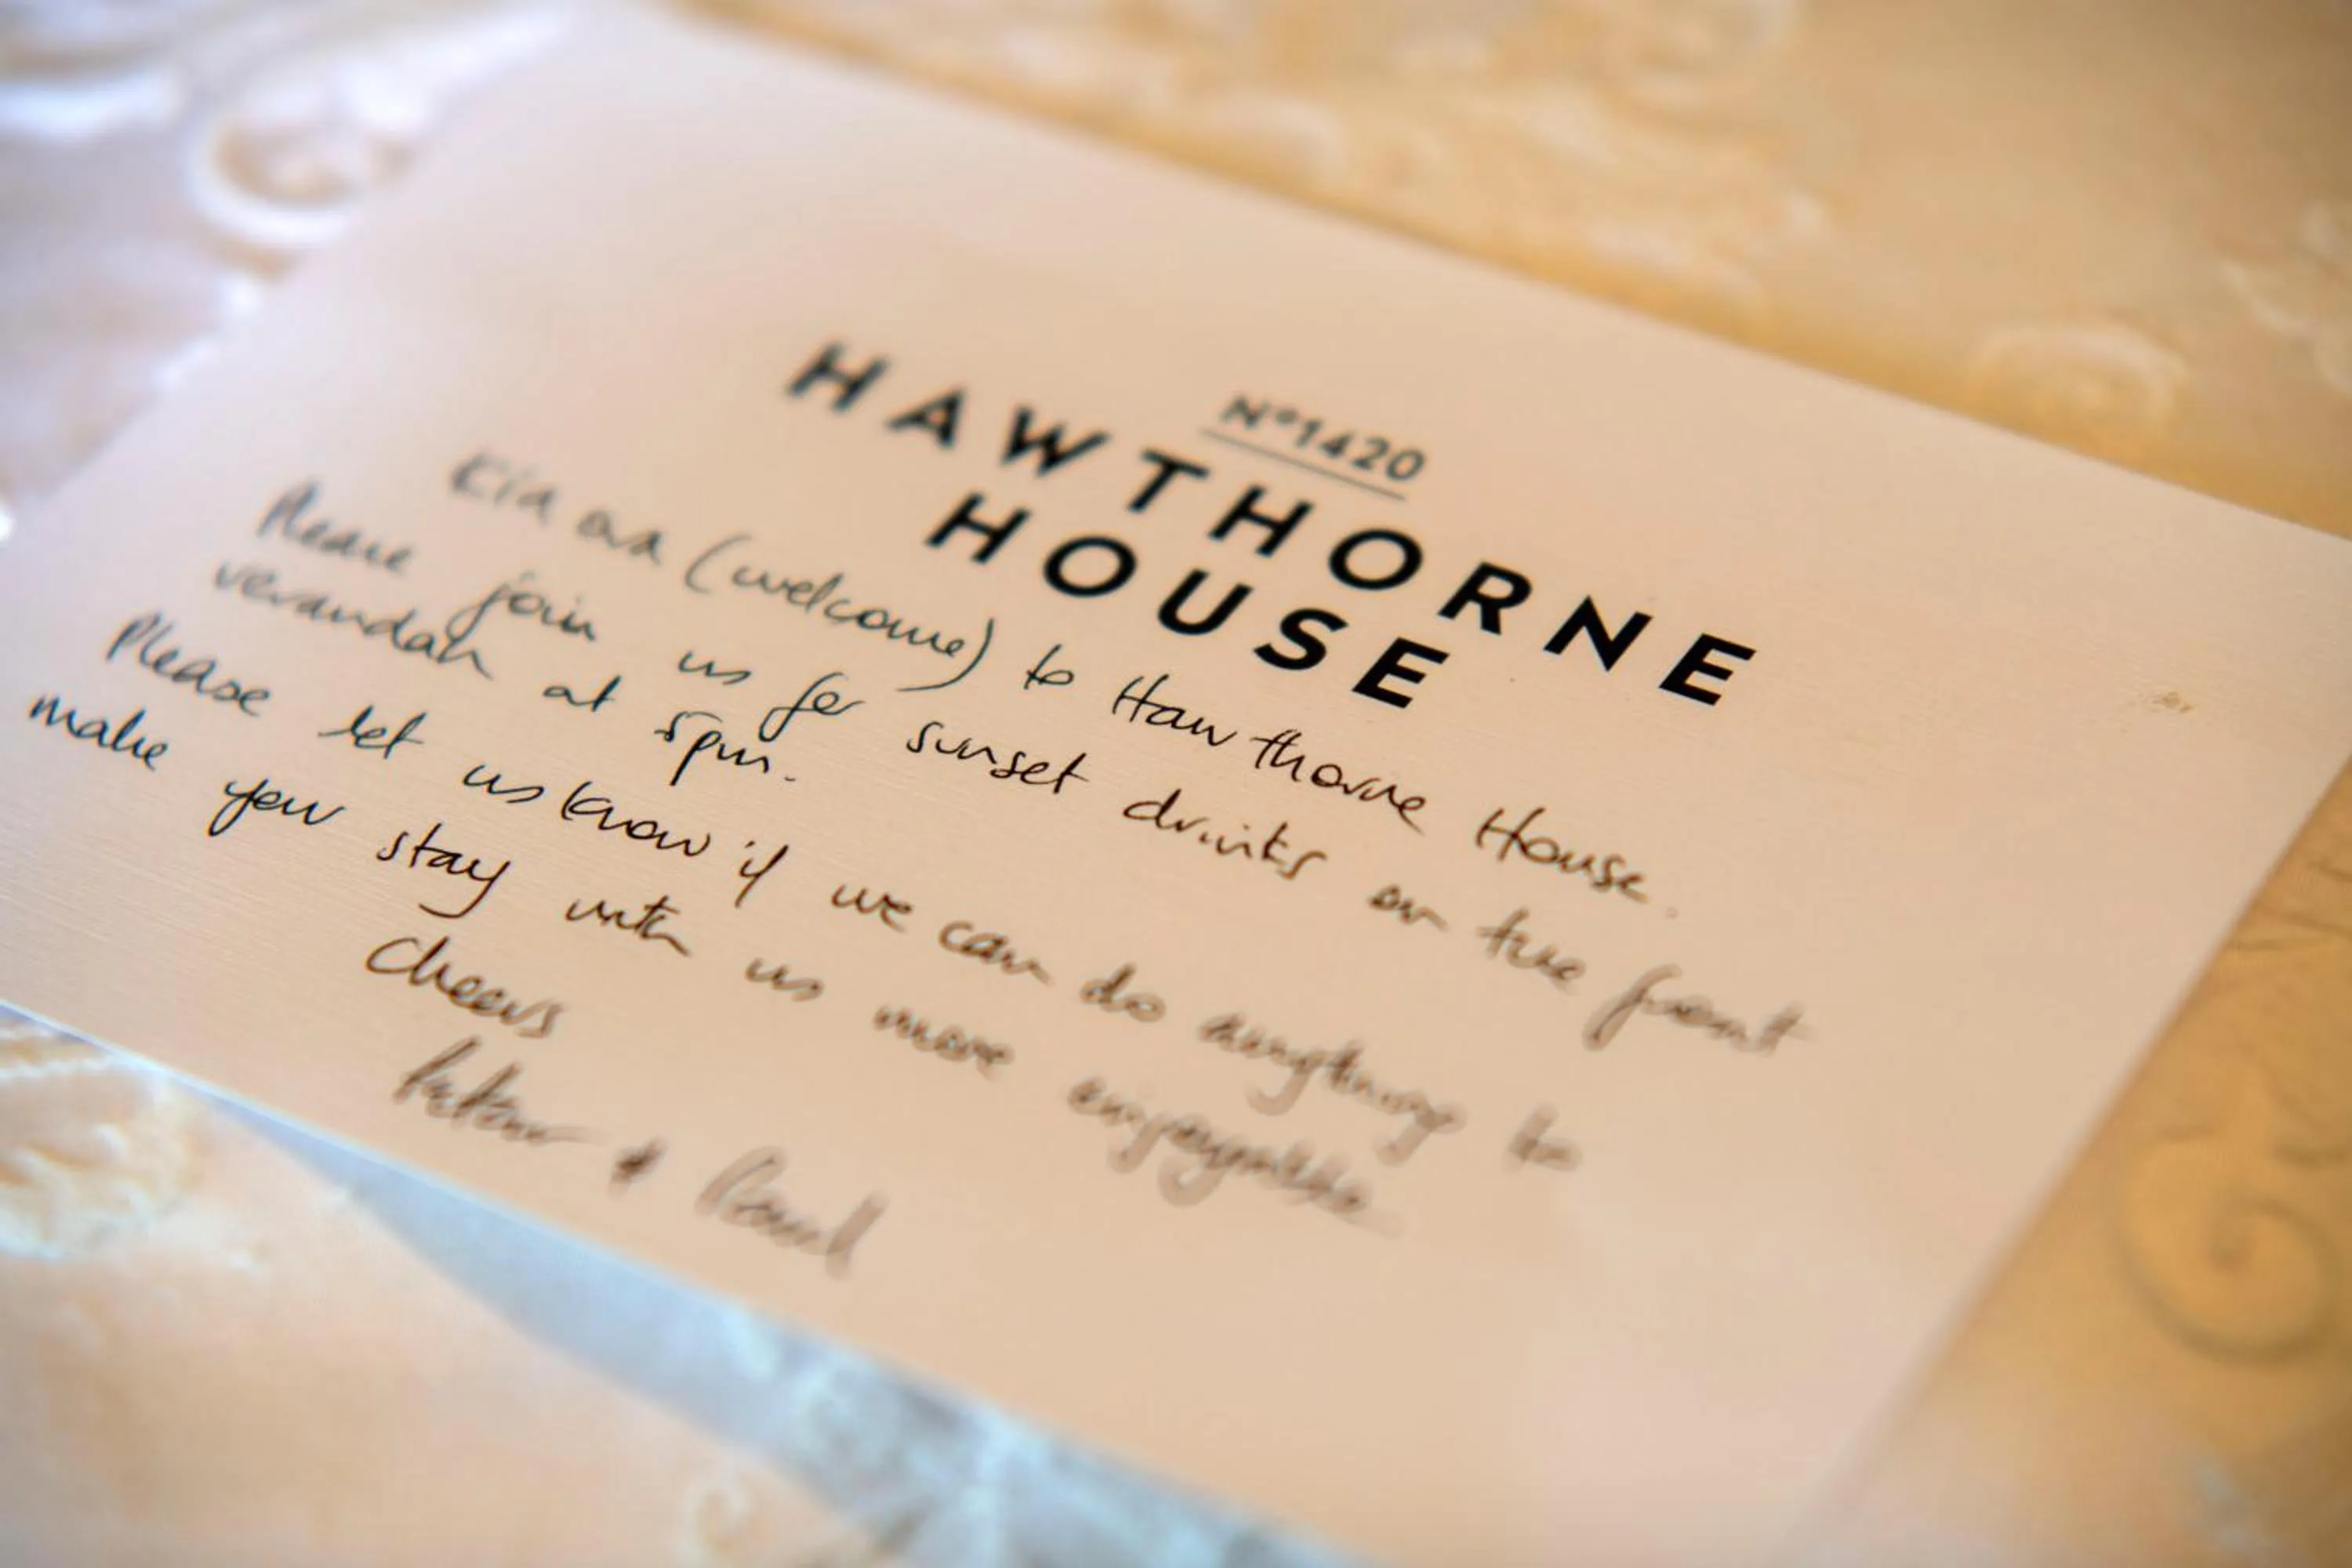 Nº1420
HAWTHORNE
HOUSE
Kia ora (welcome) to Hawthorne House.
Please join us for sunset drinks on the front
verandah at 5pm.
Please let us know if we can do anything to
make your stay with us more enjoyable
Cheers
+ Paul